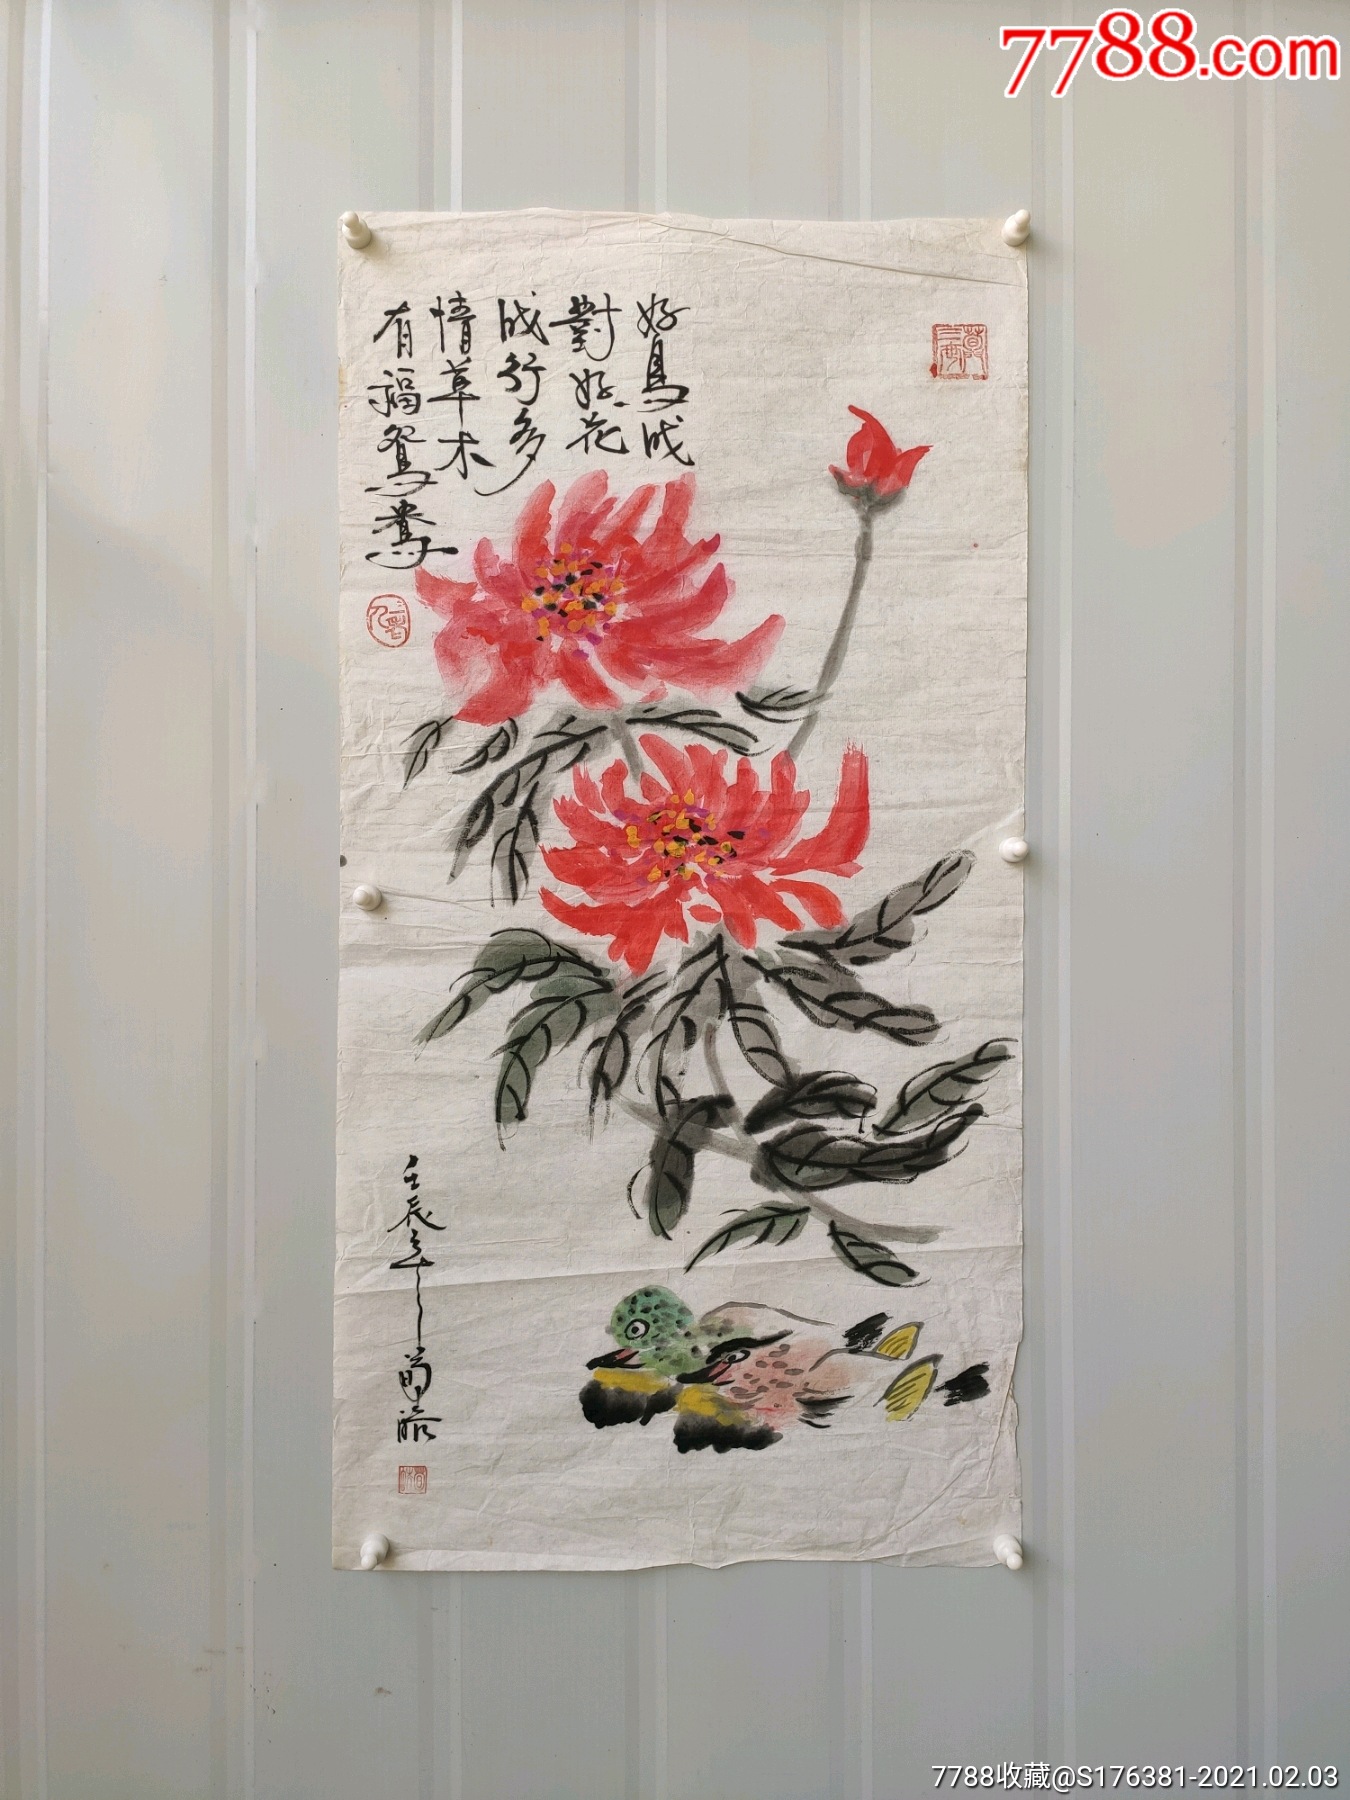 7788.com
好鳥成
對好花
成行多
情草木
有福鴛鴦
壬辰年
7788收藏@S176381-2021.02.03